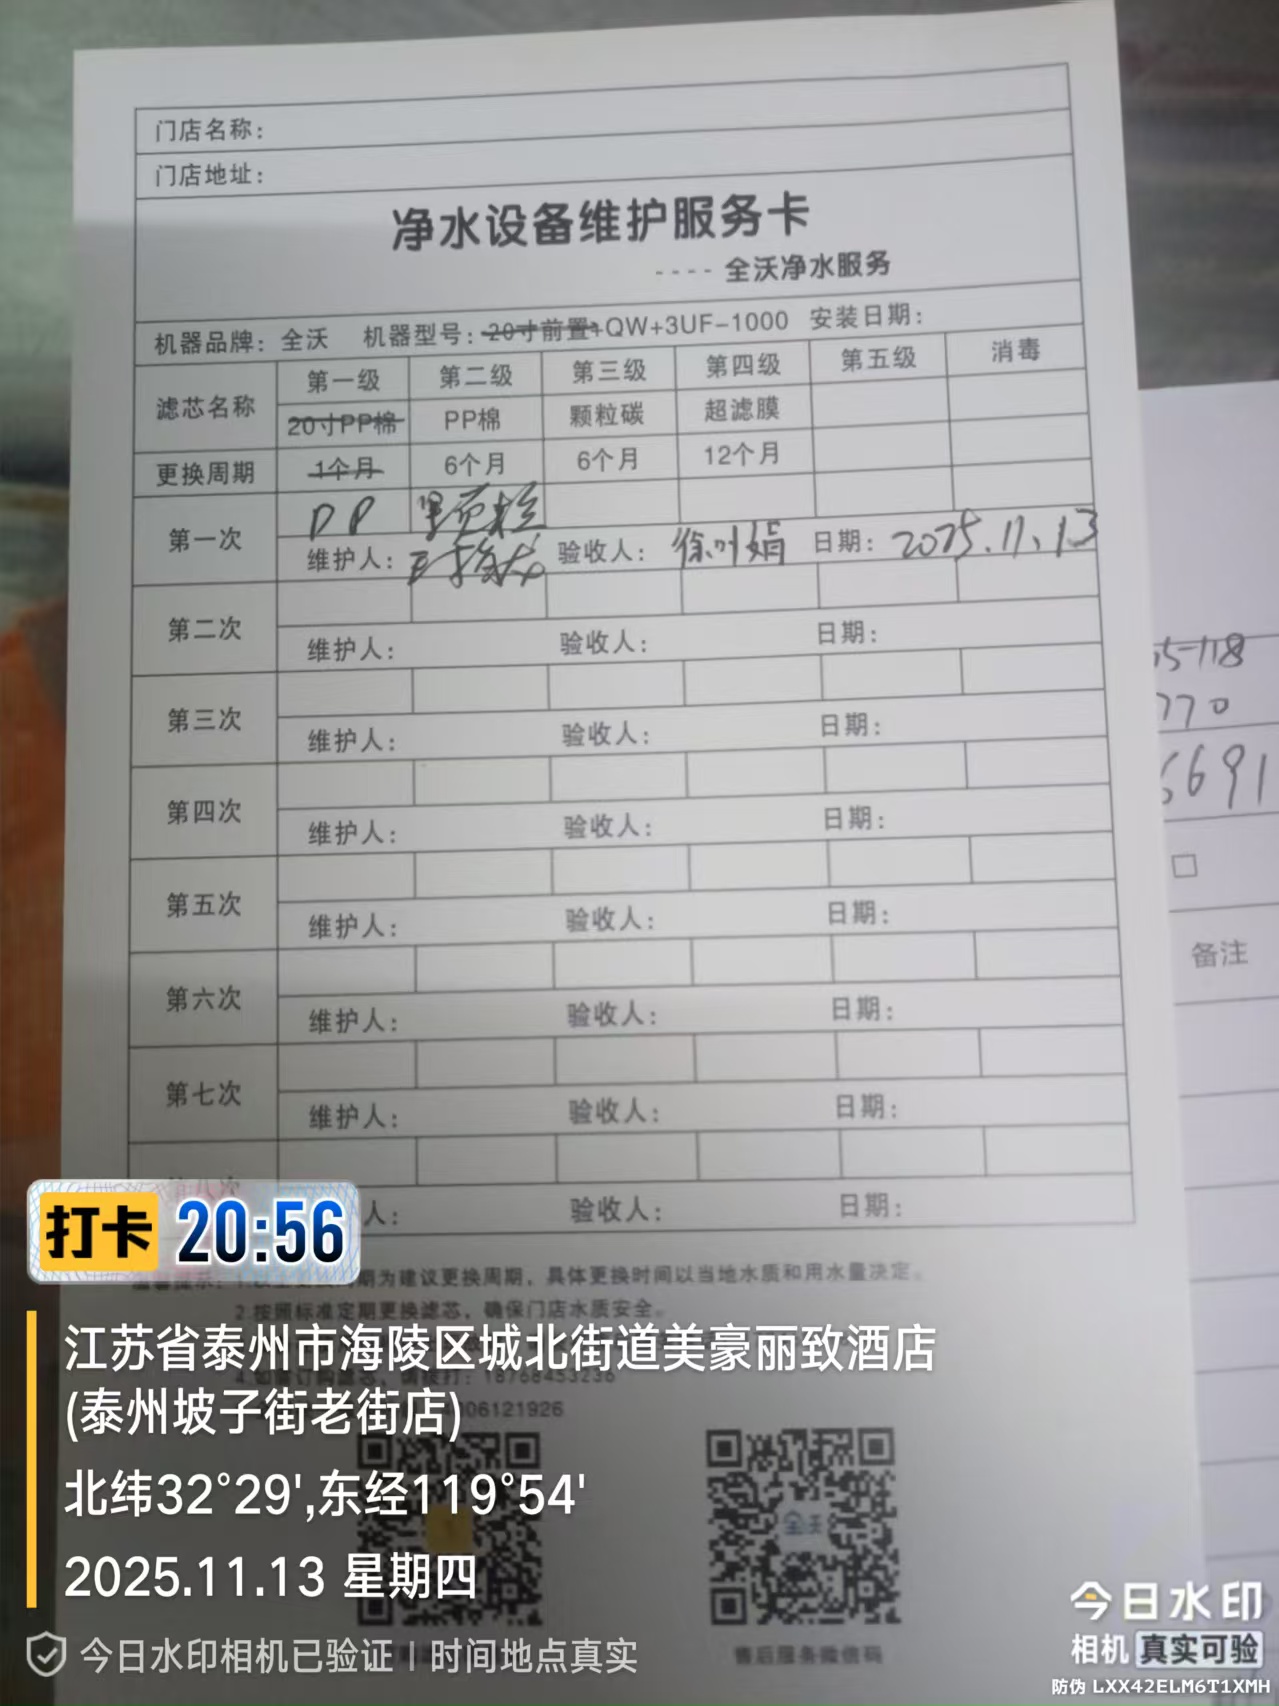 门店名称：
门店地址：
净水设备维护服务卡
---- 全沃净水服务
机器品牌：全沃 机器型号：20寸前置+QW+3UF-1000 安装日期：
滤芯名称 第一级 第二级 第三级 第四级 第五级 消毒
20寸PP棉 PP棉 颗粒碳 超滤膜
更换周期 1个月 6个月 6个月 12个月
第一次 PP 颗粒
维护人： 验收人：徐叶娟 日期：2025.11.13
第二次
维护人： 验收人： 日期：
第三次
维护人： 验收人： 日期：
第四次
维护人： 验收人： 日期：
第五次
维护人： 验收人： 日期：
第六次
维护人： 验收人： 日期：
第七次
维护人： 验收人： 日期：
第八次
人： 验收人： 日期：
期为建议更换周期，具体更换时间以当地水质和用水量决定。
2.按照标准定期更换滤芯，确保门店水质安全。
4.如需订购滤芯，请拨打：18768453236
06121926
售后服务微信码
5-118
770
6691
□
备注
打卡 20:56
江苏省泰州市海陵区城北街道美豪丽致酒店
(泰州坡子街老街店)
北纬32°29',东经119°54'
2025.11.13 星期四
今日水印相机已验证 | 时间地点真实
今日水印
相机 真实可验
防伪 LXX42ELM6T1XMH